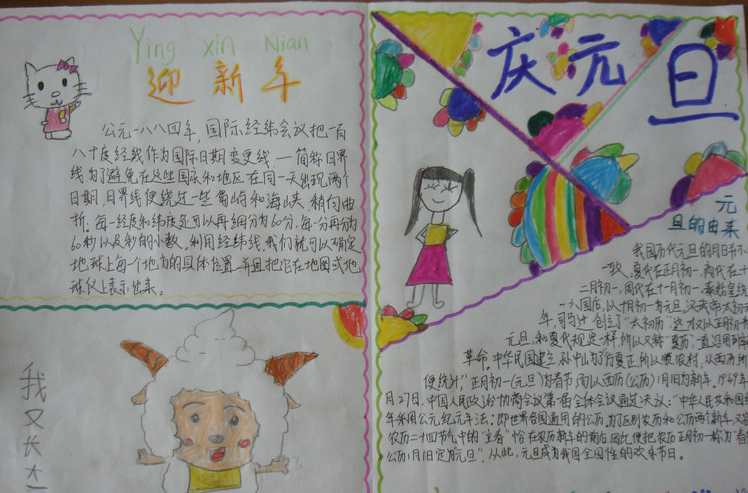 Ying xin Nian
迎新年
公元一八八四年,国际经纬会议把一百
八十度经线作为国际日期变更线,一简称日界
线为了避免在这些国家和地区在同一天出现两个
日期,日界线便绕过一些岛屿和海峡,稍向曲
折。每一经度和纬度还可以再细分为60分,每一分再分为
60秒以及秒的小数。利用经纬线,我们就可以确定
地球上每个地方的具体位置,并且把它在地图或地
球仪上表示出来。
我又长大
庆元旦
元
旦的由来
我国历代元旦的月日并不
一致。夏代在正月初一,商代在十
二月初一,周代在十一月初一,秦始皇统
一六国后,以十月初一为元旦,汉武帝太初
年,司马迁创立了“太初历”,这才又以正月初一
元旦,和夏代规定一样,所以又称“夏历”,一直沿用到
革命。中华民国建立,孙中山为了行夏正,所以顺农村,从西历所
便统计,正月初一(元旦)为春节,而以西历(公历)1月1日为新年。1949年
月27日,中国人民政治协商会议第一届全体会议通过决议:“中华人民共和国
年采用公元纪元年法”,即世界各国通用的公历,为了区别农历和公历两个新年,又
农历二十四节气中的“立春”恰在农历新年的前后,因此便把农历正月初一称为“春
公历1月1日定为元旦”。从此,元旦成为我国全国性的欢乐节日。